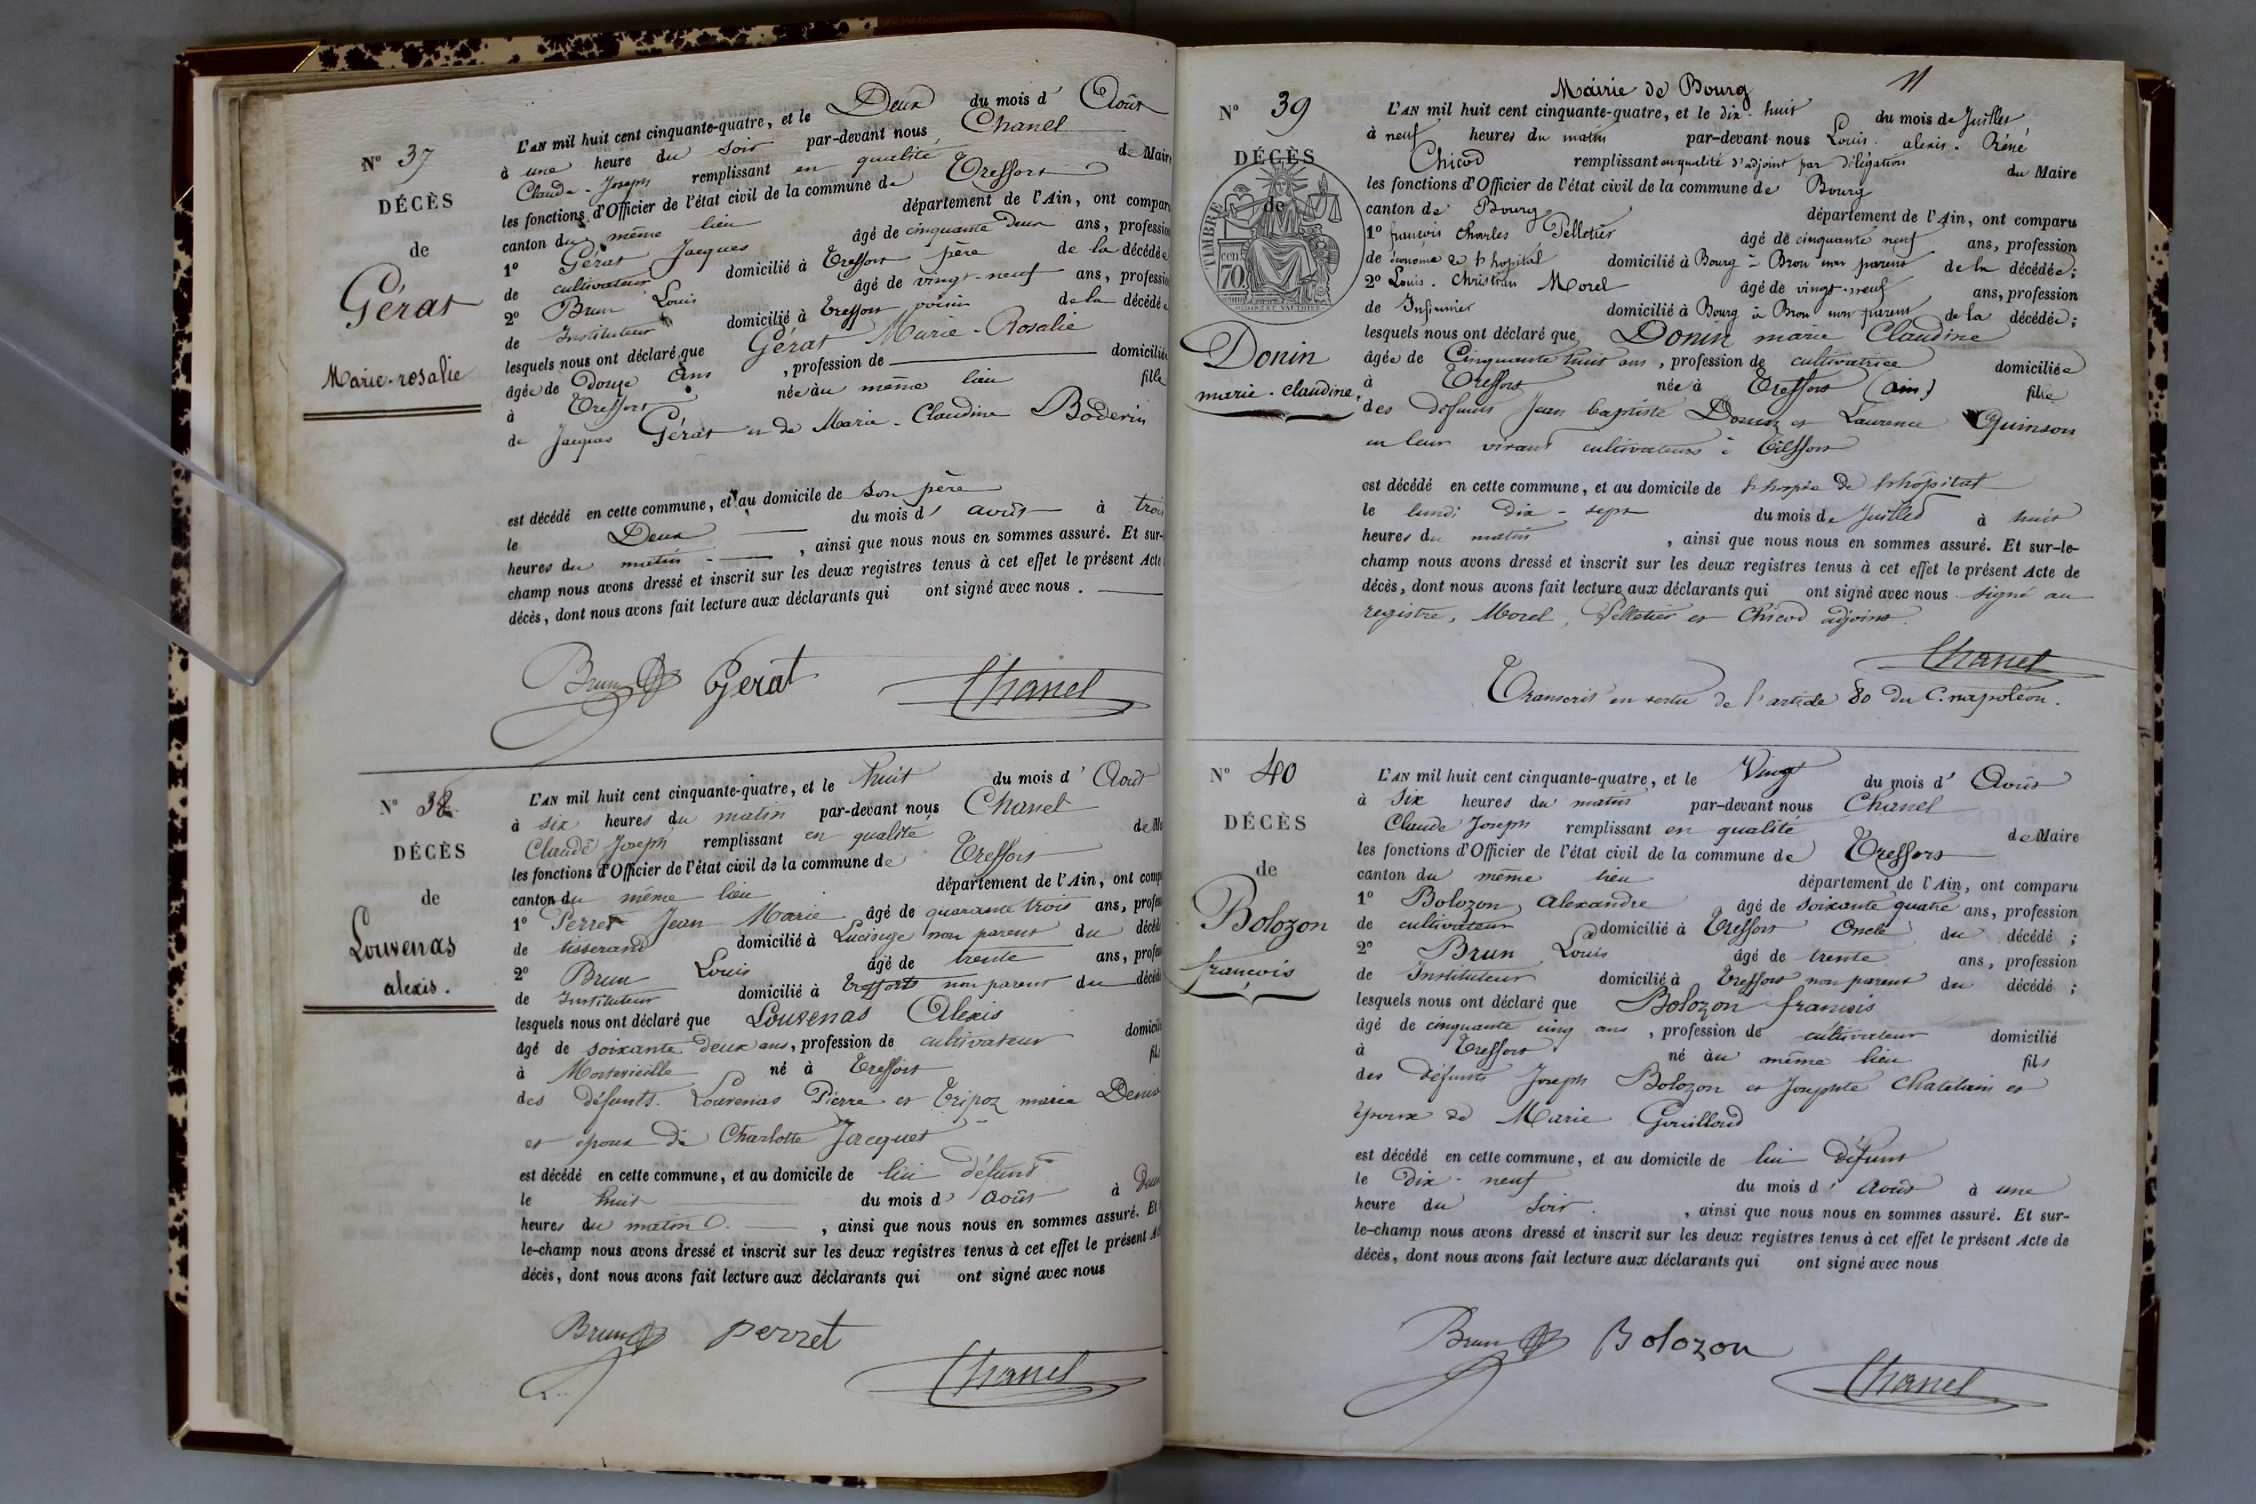 N° 37
DÉCÈS
de
Gérat
Marie-rosalie
L'AN mil huit cent cinquante-quatre, et le Deux du mois d' Août
à une heure du soir par-devant nous Chanel
Claude-Joseph remplissant en qualité de Maire
les fonctions d'Officier de l'état civil de la commune de Treffort
canton du même lieu département de l'Ain, ont comparu
1° Gérat Jacques âgé de cinquante deux ans, profession
de cultivateur domicilié à Treffort père de la décédée
2° Brun Louis âgé de vingt-neuf ans, profession
de Instituteur domicilié à Treffort voisin de la décédée
lesquels nous ont déclaré que Gérat Marie-Rosalie
âgée de Douze ans, profession de domiciliée
à Treffort née au même lieu fille
de Jacques Gérat et de Marie-Claudine Boderin
est décédé en cette commune, et au domicile de son père
le Deux du mois d' août à trois
heures du matin, ainsi que nous nous en sommes assuré. Et sur-
champ nous avons dressé et inscrit sur les deux registres tenus à cet effet le présent Acte
décès, dont nous avons fait lecture aux déclarants qui ont signé avec nous.
Brun Gerat Chanel
N° 38
DÉCÈS
de
Louvenas
alexis.
L'AN mil huit cent cinquante-quatre, et le huit du mois d' Août
à six heures du matin par-devant nous Chanel
Claude Joseph remplissant en qualité de Ma
les fonctions d'Officier de l'état civil de la commune de Treffort
canton du même lieu département de l'Ain, ont comp
1° Perret Jean Marie âgé de quarante trois ans, profes
de tisserand domicilié à non parent du décédé
2° Brun Louis âgé de trente ans, profes
de Instituteur domicilié à Treffort non parent du décédé
lesquels nous ont déclaré que Louvenas Alexis
âgé de soixante deux ans, profession de cultivateur domicilié
à né à Treffort fils
des défunts Louvenas Pierre et Tripoz marie Denis
et époux de Charlotte Jacquet
est décédé en cette commune, et au domicile de lui défunt
le huit du mois d' août à Deux
heures du matin, ainsi que nous nous en sommes assuré. Et
le-champ nous avons dressé et inscrit sur les deux registres tenus à cet effet le présent Ac
décès, dont nous avons fait lecture aux déclarants qui ont signé avec nous
Brun perret
Chanel
Mairie de Bourg
11
N° 39
DÉCÈS
de
TIMBRE
cen
70
Donin
marie-claudine,
L'AN mil huit cent cinquante-quatre, et le dix-huit du mois de Juillet
à neuf heures du matin par-devant nous Louis. alexis. Réné
Chicod remplissant en qualité d'adjoint par délégation du Maire
les fonctions d'Officier de l'état civil de la commune de Bourg
canton de Bourg département de l'Ain, ont comparu
1° françois charles Pelletier âgé de cinquante neuf ans, profession
de économe de l'hopital domicilié à Bourg à Brou non parent de la décédée;
2° Louis. Christian Morel âgé de vingt-neuf ans, profession
de Infirmier domicilié à Bourg à Brou non parent de la décédée;
lesquels nous ont déclaré que Donin marie Claudine
âgée de Cinquante huit ans, profession de cultivatrice domiciliée
à Treffort née à Treffort (ain) fille
des défunts Jean baptiste Donin et Laurence Quinson
en leur vivant cultivateurs à Treffort
est décédé en cette commune, et au domicile de l'hospice de l'hôpital
le lundi dix-sept du mois de Juillet à huit
heures du matin, ainsi que nous nous en sommes assuré. Et sur-le-
champ nous avons dressé et inscrit sur les deux registres tenus à cet effet le présent Acte de
décès, dont nous avons fait lecture aux déclarants qui ont signé avec nous signé au
registre, Morel, Pelletier et Chicod adjoint.
Chanel
Transcrit en vertu de l'article 80 du C. napoléon.
N° 40
DÉCÈS
de
Bolozon
françois
L'AN mil huit cent cinquante-quatre, et le Vingt du mois d' Août
à six heures du matin par-devant nous Chanel
Claude Joseph remplissant en qualité de Maire
les fonctions d'Officier de l'état civil de la commune de Treffort
canton du même lieu département de l'Ain, ont comparu
1° Bolozon Alexandre âgé de soixante quatre ans, profession
de cultivateur domicilié à Treffort Oncle du décédé;
2° Brun Louis âgé de trente ans, profession
de Instituteur domicilié à Treffort non parent du décédé;
lesquels nous ont déclaré que Bolozon françois
âgé de cinquante cinq ans, profession de cultivateur domicilié
à Treffort né au même lieu fils
des défunts Joseph Bolozon et Josephte Chatelain et
époux de Marie Gouilloud
est décédé en cette commune, et au domicile de lui défunt
le dix-neuf du mois d' août à une
heure du soir., ainsi que nous nous en sommes assuré. Et sur-
le-champ nous avons dressé et inscrit sur les deux registres tenus à cet effet le présent Acte de
décès, dont nous avons fait lecture aux déclarants qui ont signé avec nous
Brun Bolozon
Chanel